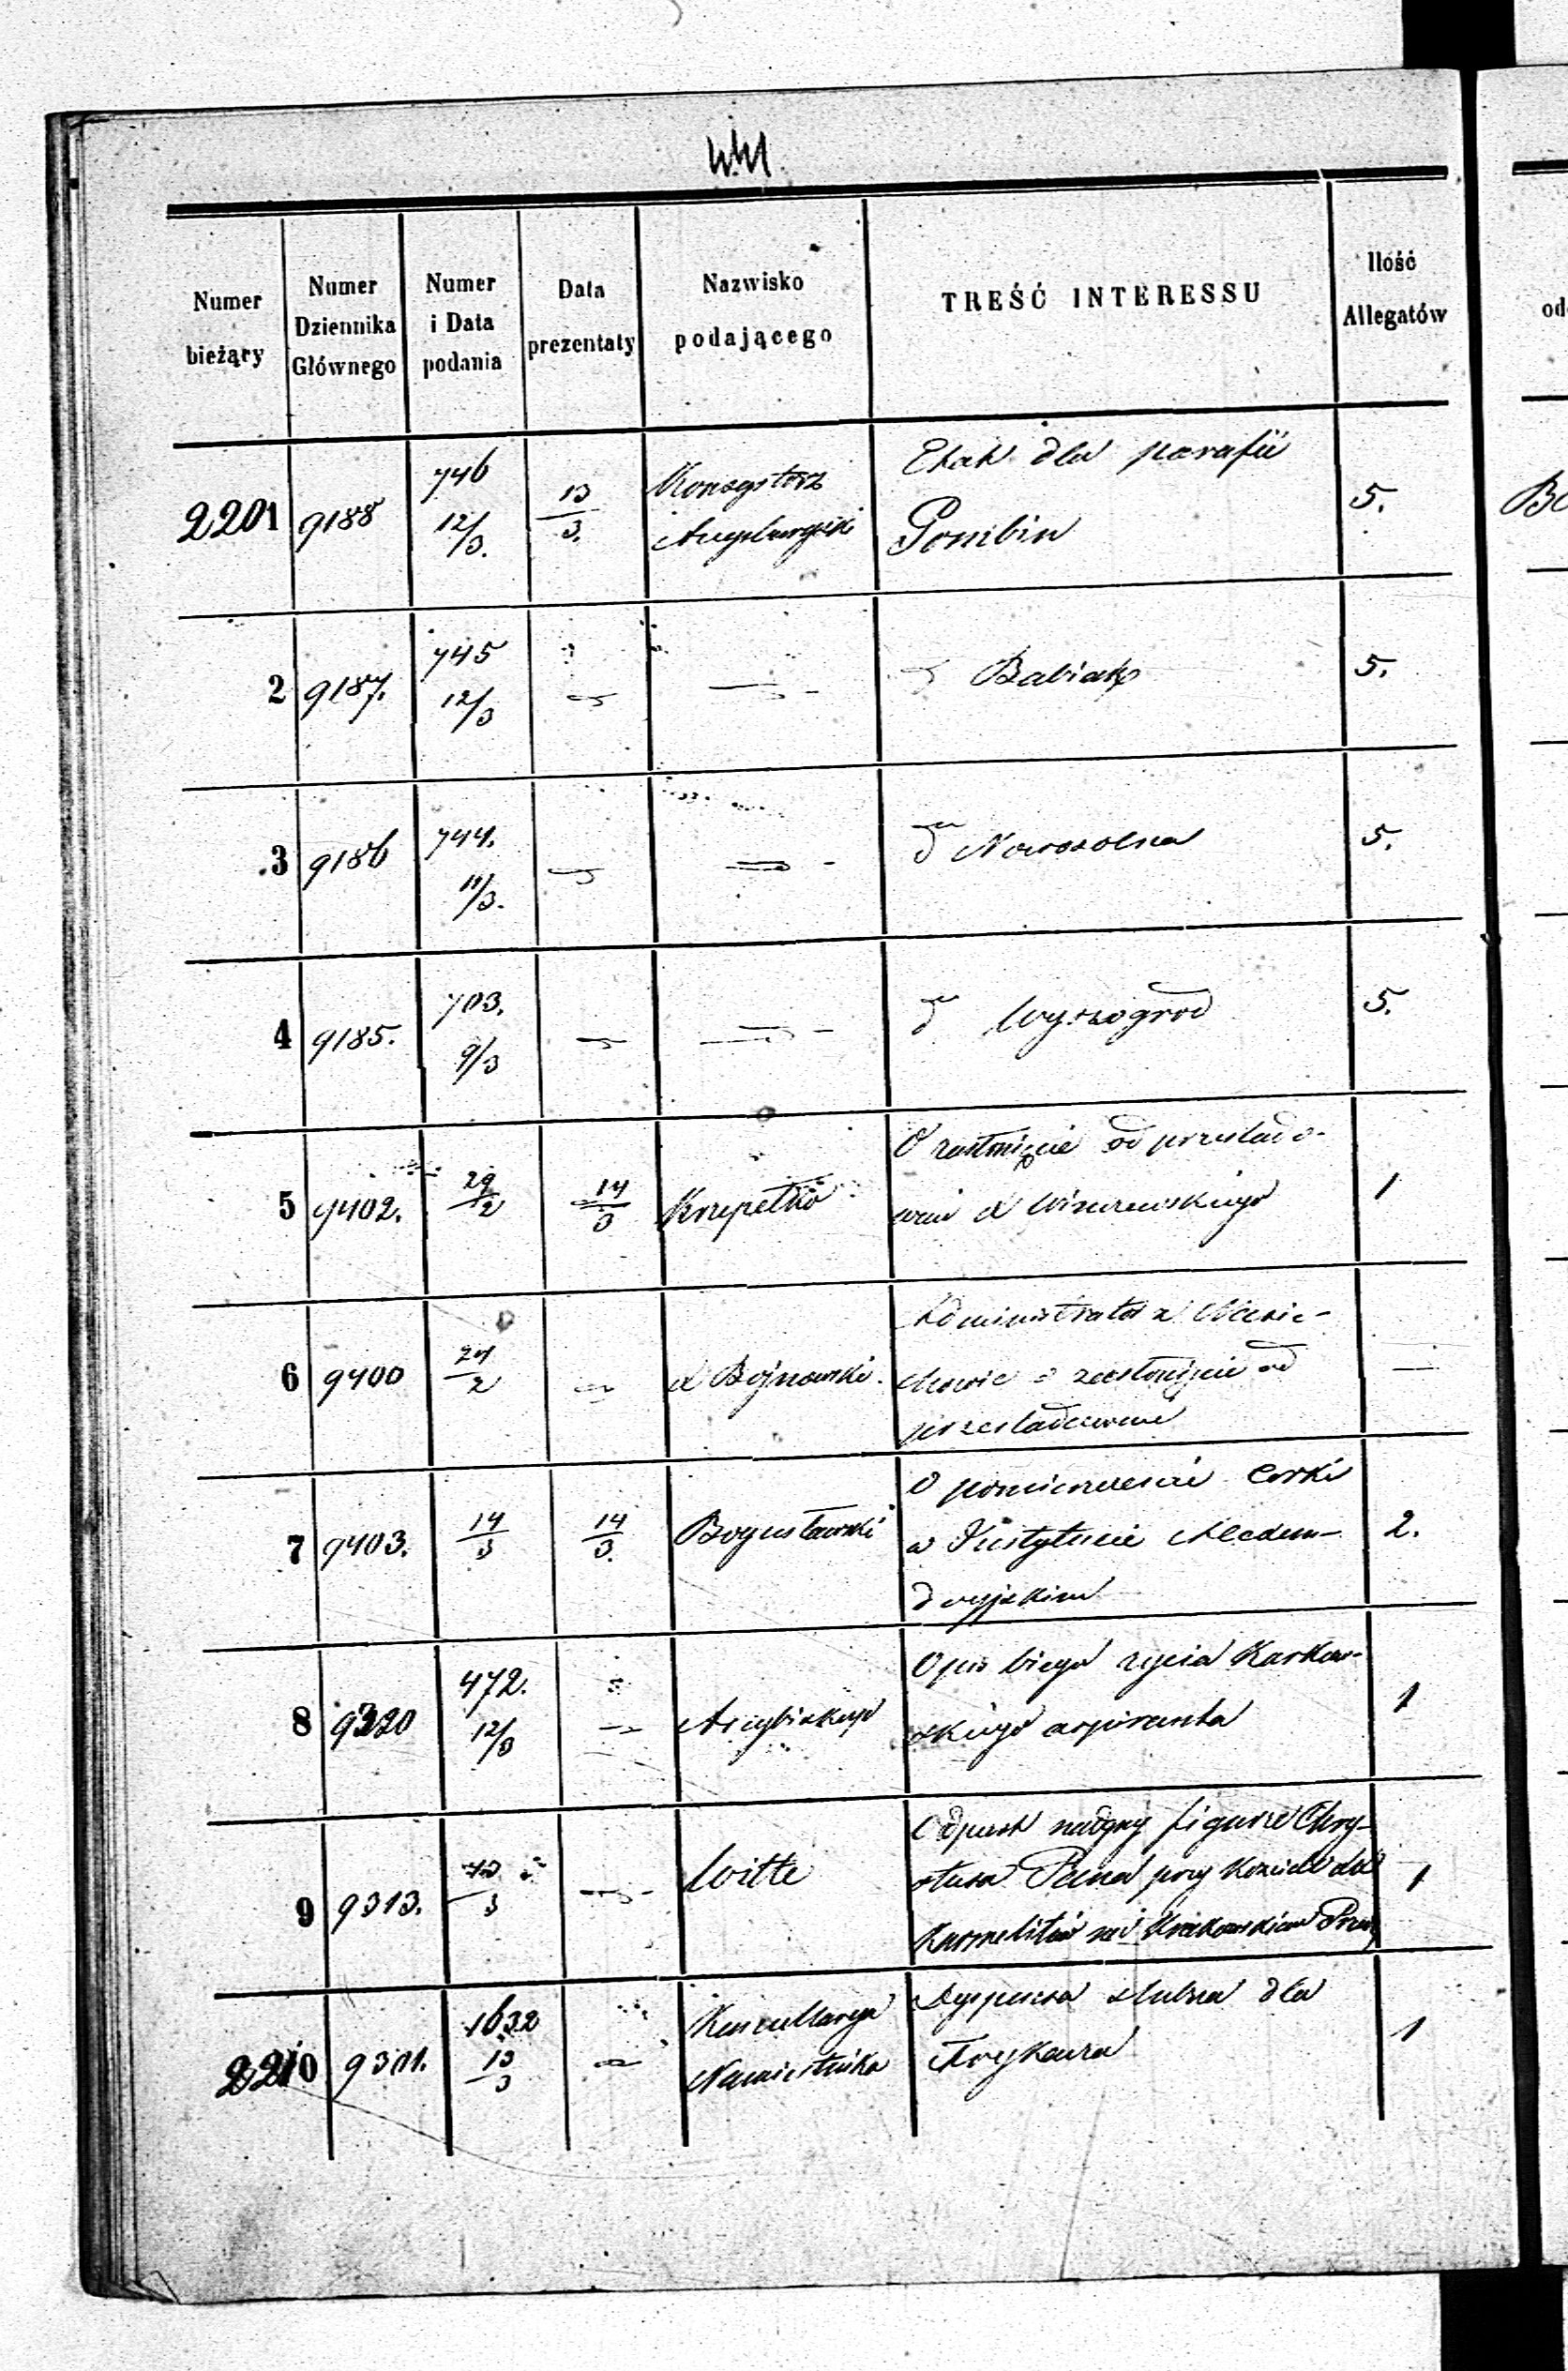 Numer bieżący
Numer Dziennika Głównego
Numer i Data podania
Data prezentaty
Nazwisko podającego
TREŚĆ INTERESSU
Ilość Allegatów
2201 9188 746 12/3. 13/3. Konsystorz Augsburgski
Etat dla parafii
Gombin
5.
2 9187. 745 12/3
Babiak
5.
3 9186 744. 11/3.
d Nowosolna
5.
4 9185. 703. 9/3
d Wyszogrod
5.
5 9402. 29/2 14/3 Krzepełko
O zasłonięcie od prześlado-
1
6 9400 24/2 X Bojnowski.
Administrator z
o zasłonięcie od
prześladowania
7 9403. 14/3 14/3. Bogusławski
O pomieszczenie Corki
w Instytucie
2.
8 9320 472. 12/3 Arcybiskup
Opis biegu życia Karkow-
skiego aspiranta
1
9 9313. Witte
Odpust figurze Chry-
stusa Pana przy
Karmelitów na Krakowskiem
1
2210 9301. 1632 13/3 Kancellarya Namiestnika
Dyspensa ślubna dla
1